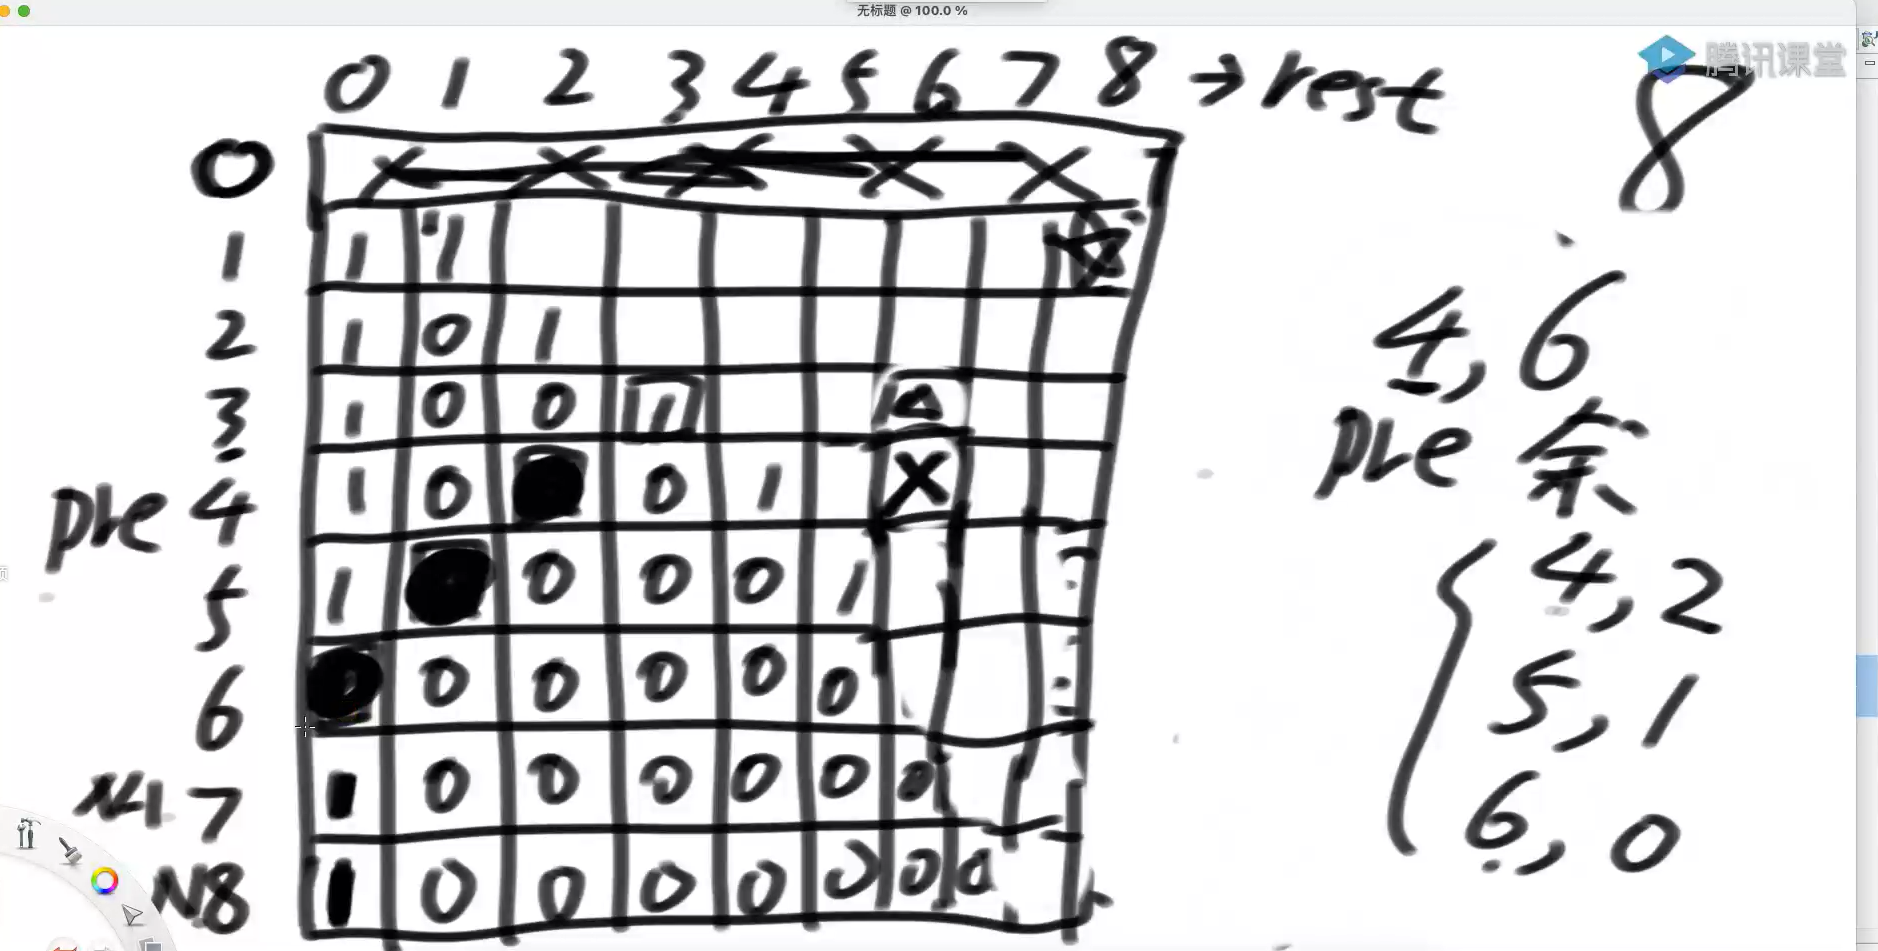 无标题 @ 100.0 %
腾讯课堂
0 1 2 3 4 5 6 7 8 → rest
8
0 X X X X
1 1 1
2 1 0 1
3 1 0 0 1
pre 4 1 0 0 1 X
5 1 0 0 0 1
6 0 0 0 0 0
7 1 0 0 0 0 0 0
N8 1 0 0 0 0 0 0 0
4, 6
pre 余
4, 2
5, 1
6, 0